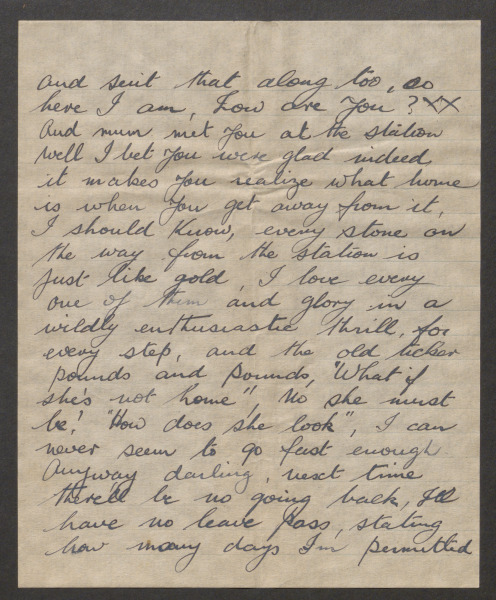 and sent that along too, so
here I am, how are you? xx
And mum met you at the station
well I bet you were glad indeed
it makes you realize what home
is when you get away from it,
I should know, every stone on
the way from the station is
just like gold, I love every
one of them and glory in a
wildly enthusiastic thrill, for
every step, and the old ticker
pounds and pounds, "What if
she's not home", No she must
be! "How does she look", I can
never seem to go fast enough
Anyway darling, next time
there'll be no going back, I'll
have no leave pass, stating
how many days I'm permitted